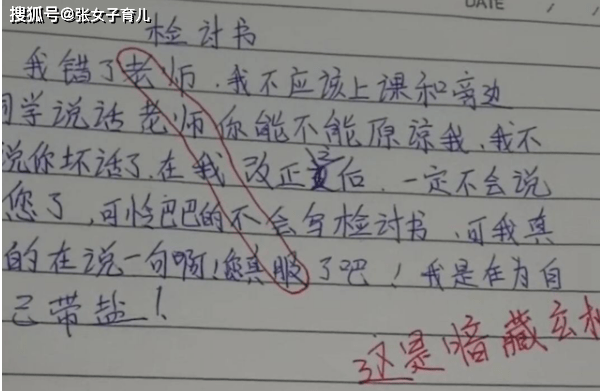 搜狐号@张女子育儿
DATE / /
检讨书
我错了老师,我不应该上课和旁边
同学说话老师你能不能原谅我,我不
说你坏话了.在我改正后,一定不会说
您了,可怜巴巴的不会写检讨书,可我真
的在说一句啊!您真服了吧!我是在为自
己带盐!
这是暗藏玄机